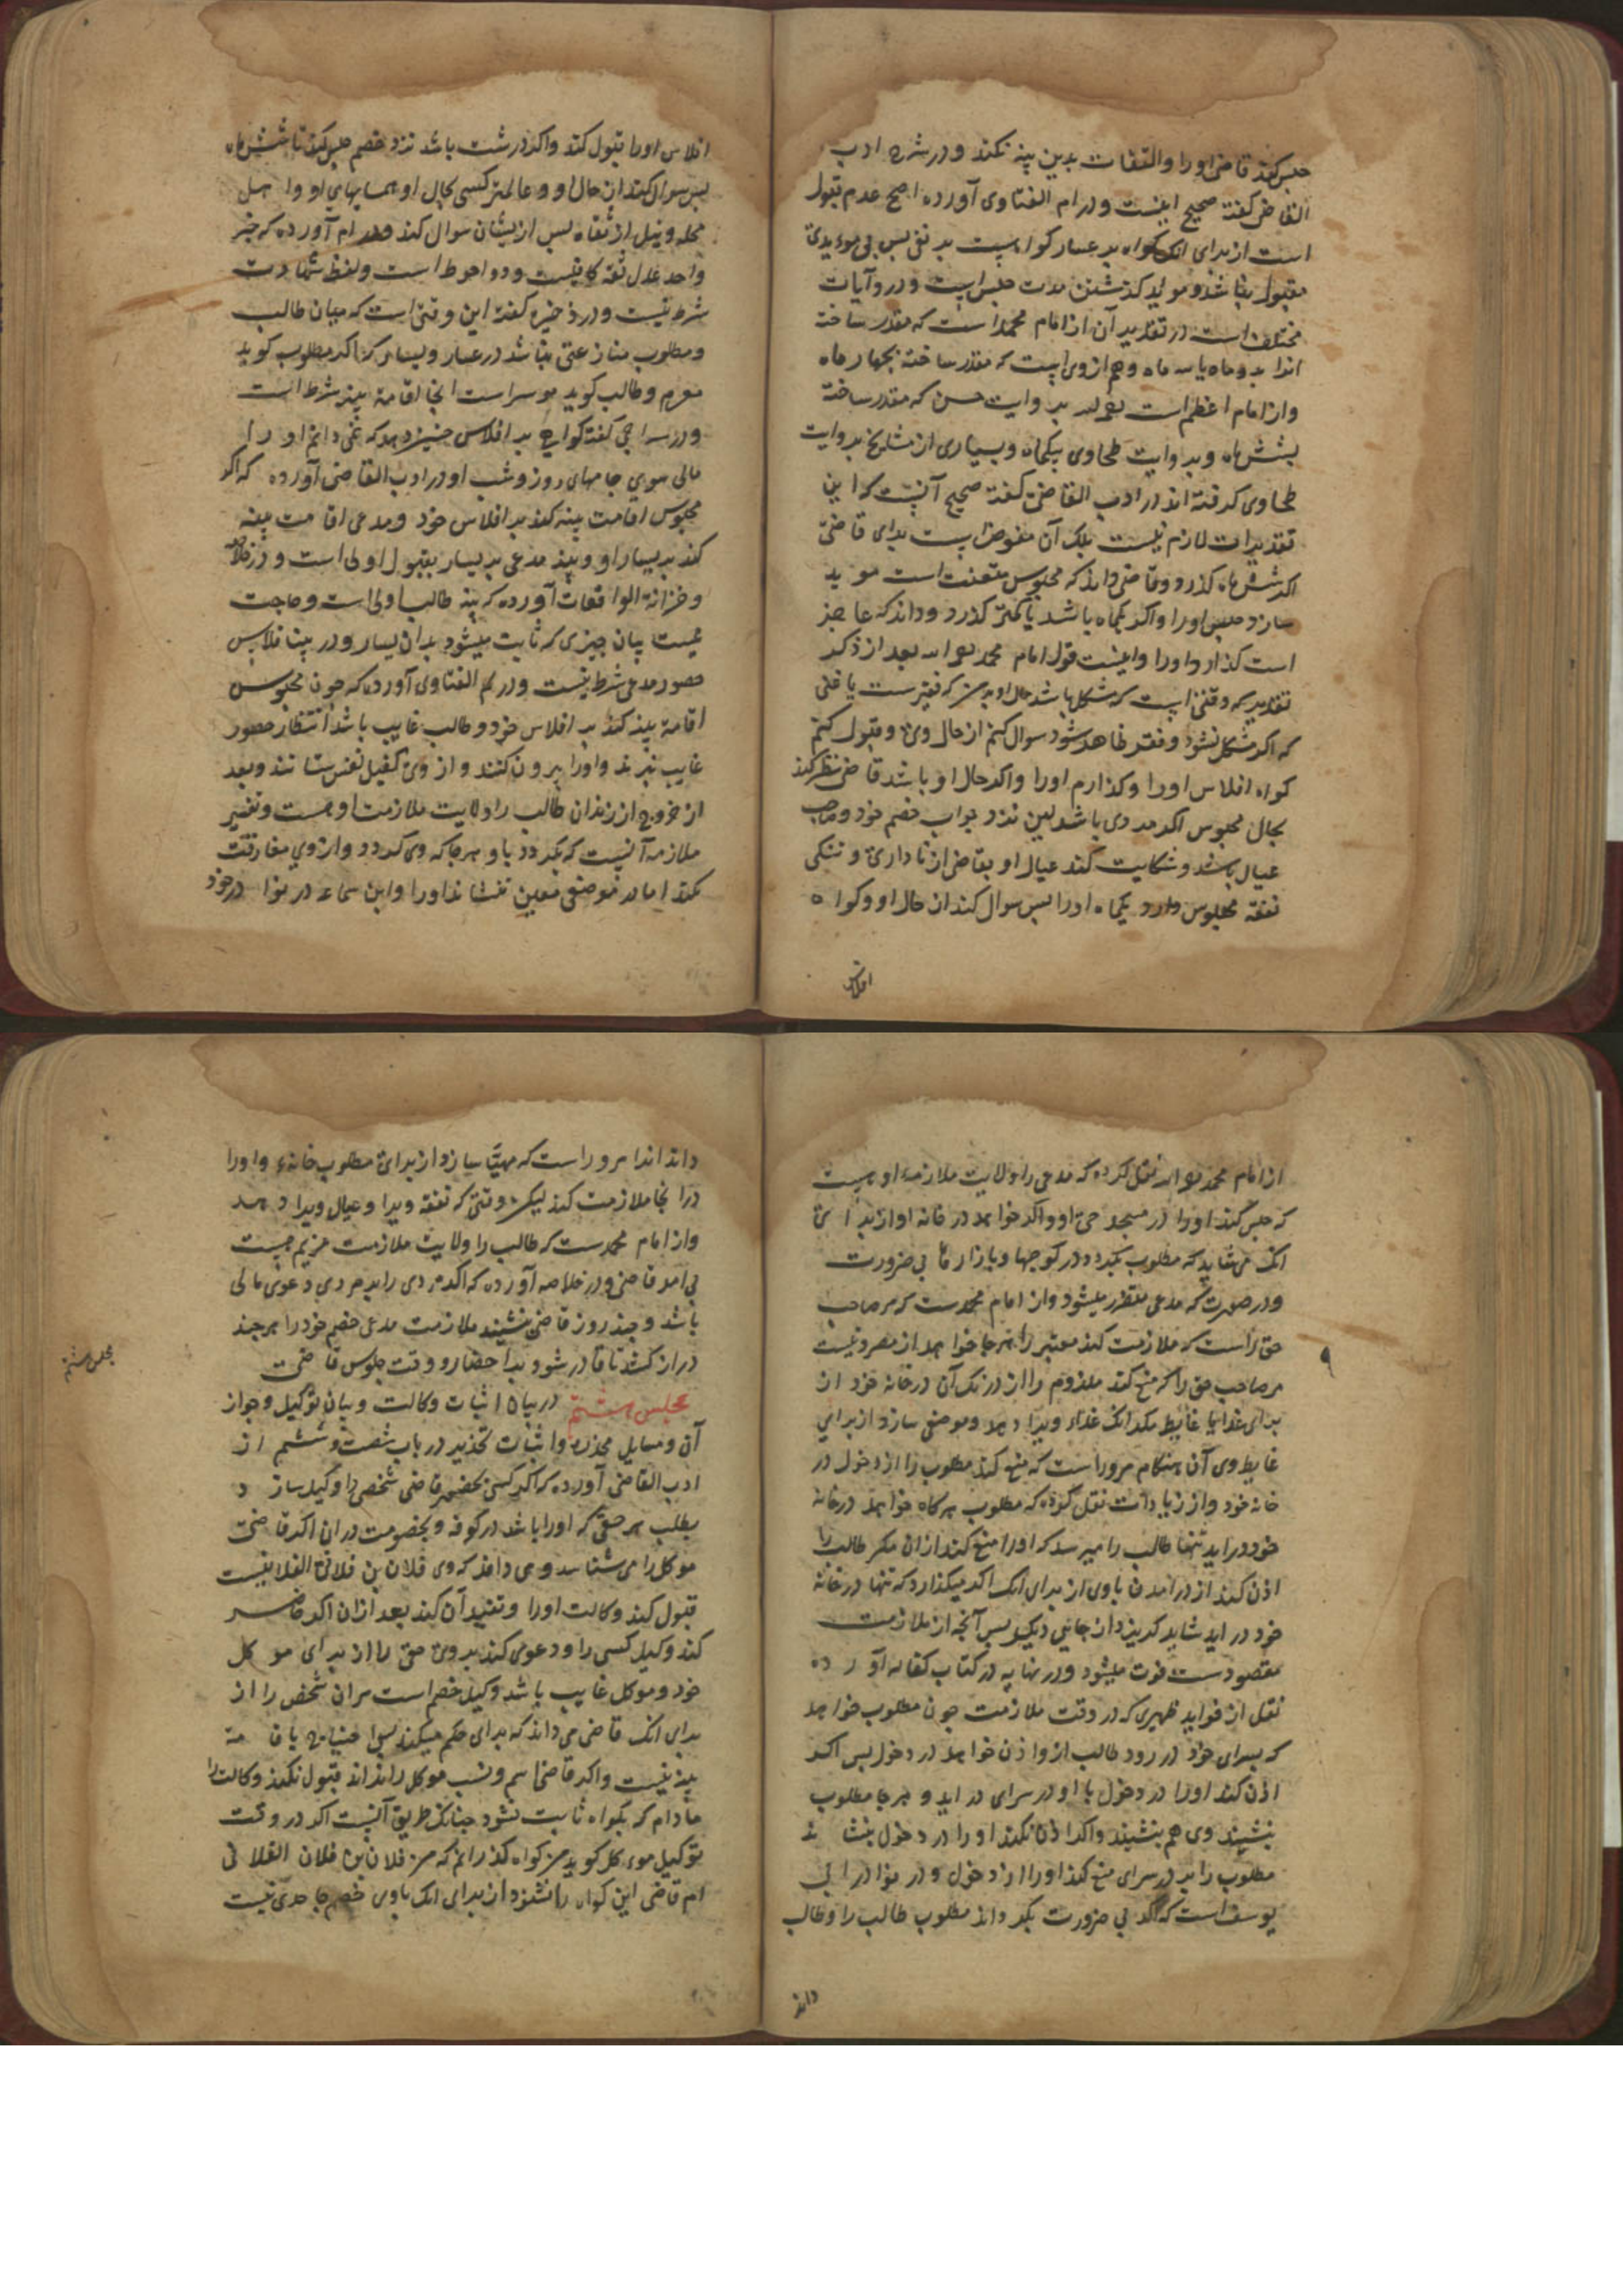 حبس کند قاضی او را و التفات بدین بینه نکند و در شرح ادب
القاضی کفته صحیح اینست و در ام الفتاوی آورده اصح عدم قبول
است از برای انک کواه بر عسار کواهیست بر نفی پس بی مویدی
مقبول نباشد و موید کذشتن مدت حبس است و در روآیات
مختلف است در تقدیر آن از امام محمد است که مقدر ساخته
انرا بدو ماه یا سه ماه و هم از وی است که مقدر ساخته بجهار ماه
و از امام اعظم است بروایت حسن که مقدر ساخته
بشش ماه و بروایت طحاوی بیکماه و بسیاری از مشایخ بروایت
طحاوی کرفته اند در ادب القاضی کفته صحیح آنست که این
تقدیرات لازم نیست بلک آن مفوض است برای قاضی
اکر شش ماه کذرد و قاضی داند که محبوس متعنت است موبد
سازد حبس او را و اکر یکماه باشد یا کمتر کذرد و داند که عاجز
است کذارد او را و اینست قول امام محمد بعد از ذکر
تقدیر که وقتی است که مشکل باشد حال او بر من که فقیر ست یا غنی
که اکر مشکل نشود و فقر ظاهر شود سوال کنم از حال وی و قبول کنم
کواه افلاس او را و کذارم او را و اکر حال او باشد قاضی نظر کند
بحال محبوس اکر مردی باشد لین نزد جواب خصم خود و صاحب
عیال باشد و شکایت کند عیال او بقاضی از ناداری و تنکی
نفقه محبوس دارد یکماه او را پس سوال کند از حال او و کواه
افلاس
افلاس او را قبول کند و اکر درشت باشد نزد خصم حبس کند تا شش ماه
پس سوال کند از حال او و عالمتر کسی بحال او همسایهای او و اهل
محله ویند از ثقاه پس ازیشان سوال کند و در ام آورده که خبر
واحد عدل ثقه کافیست و دو احوط است و لفظ شهادت
شرط نیست و در ذخیره کفته این وقتی است که میان طالب
و مطلوب منازعتی نباشد در عسار و یسار که اکر مطلوب کوید
معسرم و طالب کوید موسر است انجا اقامة بینه شرط است
و در سراجی کفته کواهی بر افلاس جنین دهد که نمی دانم او را
مالی سوی جامهای روز و شب او در ادب القاضی آورده که اکر
محبوس اقامت بینه کند بر افلاس خود و مدعی اقامت بینه
کند بر یسار او بینه مدعی بر یسار بقبول اولی است و در خلاصه
و خزانة الواقعات آورده که بینه طالب اولی است و حاجت
نیست بیان جیزی که ثابت میشود بدان یسار و در بینه افلاس
حضور مدعی شرط نیست و در ام الفتاوی آورده که جون محبوس
اقامة بینه کند بر افلاس خود و طالب غایب باشد انتظار حضور
غایب نبرند و او را بیرون کنند و از وی کفیل نفس ستانند و بعد
از خروج از زندان طالب را ولایت ملازمت او هست و تفسیر
ملازمه آنست که بکردد باو هر جا که وی کردد و از وی مفارقت
نکند اما در موضعی معین ننشاند او را و ابن سماعه در نوادر خود
از امام محمد نقل کرده که مدعی را ولایت ملازمه او هست
که حبس کند او را در مسجد حی او و اکر خواهد در خانه او از برای
انک می شاید که مطلوب بکردد در کوجها و بازارها بی ضرورت
و در صورت که مدعی متضرر میشود و از امام محمدست که مر صاحب
حق راست که ملازمت کند معتبر را هر جا خواهد از مصر و نیست
مر صاحب حق را که منع کند ملزوم را از درنک آن در خانه خود از
برای غدا یا غایط مکر انک غداء ویرا دهد و موضعی سازد از برای
غایط وی آن هنکام مر وراست که منع کند مطلوب را از دخول در
خانه خود و از زیادات نقل کرده که مطلوب هر کاه خواهد در خانه
خود دراید تنها طالب را میرسد که او را منع کند از ان مکر طالب را
اذن کند از درامدن باوی از برای انک اکر میکذارد که تنها در خانه
خود دراید شاید کریزد از جایی دیکر پس آنچه از ملازمت
مقصودست فوت میشود و در نهایه در کتاب کفاله آورده
نقل از فواید ظهیری که در وقت ملازمت جون مطلوب خواهد
که بسرای خود در رود طالب ازو اذن خواهد در دخول پس اکر
اذن کند او را در دخول با او در سرای در اید و هر جا مطلوب
بنشیند وی هم بنشیند و اکر اذن نکند او را در دخول بنشاند
مطلوب را بر در سرای منع کند او را از دخول و در نوادر ابی
یوسف است که اکر بی ضرورت بکرداند مطلوب طالب را و طالب
داند
داند انرا مر وراست که مهیا سازد از برای مطلوب خانه و او را
در انجا ملازمت کند لیکن وقتی که نفقه ویرا و عیال ویرا دهد
و از امام محمدست که طالب را ولایت ملازمت غریم نیست
بی امر قاضی و در خلاصه آورده که اکر مردی را بر مردی دعوی مالی
باشد و جند روز قاضی ننشیند ملازمت مدعی خصم خود را هر جند
دراز کشد تا قادر شود بر احضار و وقت جلوس قاضی
مجلس هشتم در بیان اثبات وکالت و بیان توکیل و جواز
آن و مسایل مخدره و اثبات تخدیر در باب شصت و ششم از
ادب القاضی آورده که اکر کسی بحضور قاضی شخصی را وکیل سازد
بطلب هر حقی که او را باشد در کوفه و بخصومت در ان اکر قاضی
موکل را می شناسد و می داند که وی فلان بن فلانی الفلانیست
قبول کند وکالت او را و تنفیذ آن کند بعد از ان اکر حاضر
کند وکیل کسی را و دعوی کند بر وی حق را از برای موکل
خود و موکل غایب باشد وکیل خصم است مر ان شخص را از
برای انک قاضی می داند که برای حکم میکند پس احتیاج باقامة
بینه نیست و اکر قاضی اسم و نسب موکل را نداند قبول نکند وکالت را
مادام که بکواه ثابت نشود جنانک طریق آنست اکر در وقت
توکیل موکل کوید من کواه کذرانم که من فلان بن فلان الفلانی
ام قاضی این کواه را نشنود از برای انک باوی خصم جاحدی نیست
مجلس هشتم